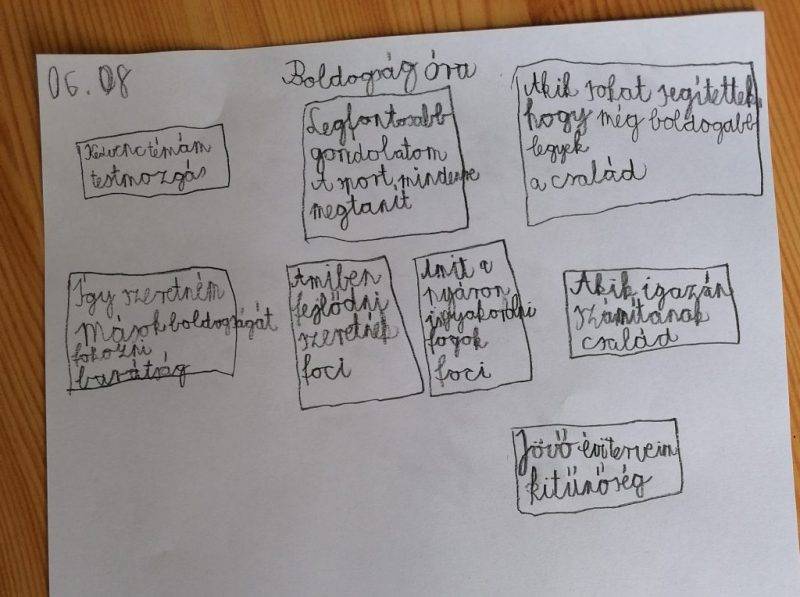 06.08
Boldogság óra
Kedvenc témám
testmozgás
Legfontosabb
gondolatom
A sport mindenre
megtanít
Akik sokat segítettek,
hogy még boldogabb
legyek
a család
Így szeretném
Mások boldogságát
fokozni
barátság
Amiben
fejlődni
szeretnék
foci
Amit a
nyáron
gyakorolni
fogok
foci
Akik igazán
számítanak
család
Jövő évi terveim
kitűnőség